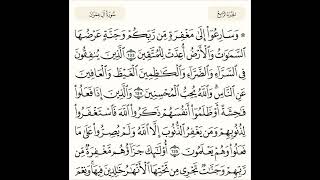 سورة آل عمران
الجزء الرابع
۞ وَسَارِعُوٓا۟ إِلَىٰ مَغْفِرَةٍ مِّن رَّبِّكُمْ وَجَنَّةٍ عَرْضُهَا
ٱلسَّمَٰوَٰتُ وَٱلْأَرْضُ أُعِدَّتْ لِلْمُتَّقِينَ ١٣٣ ٱلَّذِينَ يُنفِقُونَ
فِى ٱلسَّرَّآءِ وَٱلضَّرَّآءِ وَٱلْكَٰظِمِينَ ٱلْغَيْظَ وَٱلْعَافِينَ
عَنِ ٱلنَّاسِ وَٱللَّهُ يُحِبُّ ٱلْمُحْسِنِينَ ١٣٤ وَٱلَّذِينَ إِذَا فَعَلُوا۟
فَٰحِشَةً أَوْ ظَلَمُوٓا۟ أَنفُسَهُمْ ذَكَرُوا۟ ٱللَّهَ فَٱسْتَغْفَرُوا۟
لِذُنُوبِهِمْ وَمَن يَغْفِرُ ٱلذُّنُوبَ إِلَّا ٱللَّهُ وَلَمْ يُصِرُّوا۟ عَلَىٰ مَا
فَعَلُوا۟ وَهُمْ يَعْلَمُونَ ١٣٥ أُو۟لَٰٓئِكَ جَزَآؤُهُم مَّغْفِرَةٌ مِّن
رَّبِّهِمْ وَجَنَّٰتٌ تَجْرِى مِن تَحْتِهَا ٱلْأَنْهَٰرُ خَٰلِدِينَ فِيهَا وَنِعْمَ